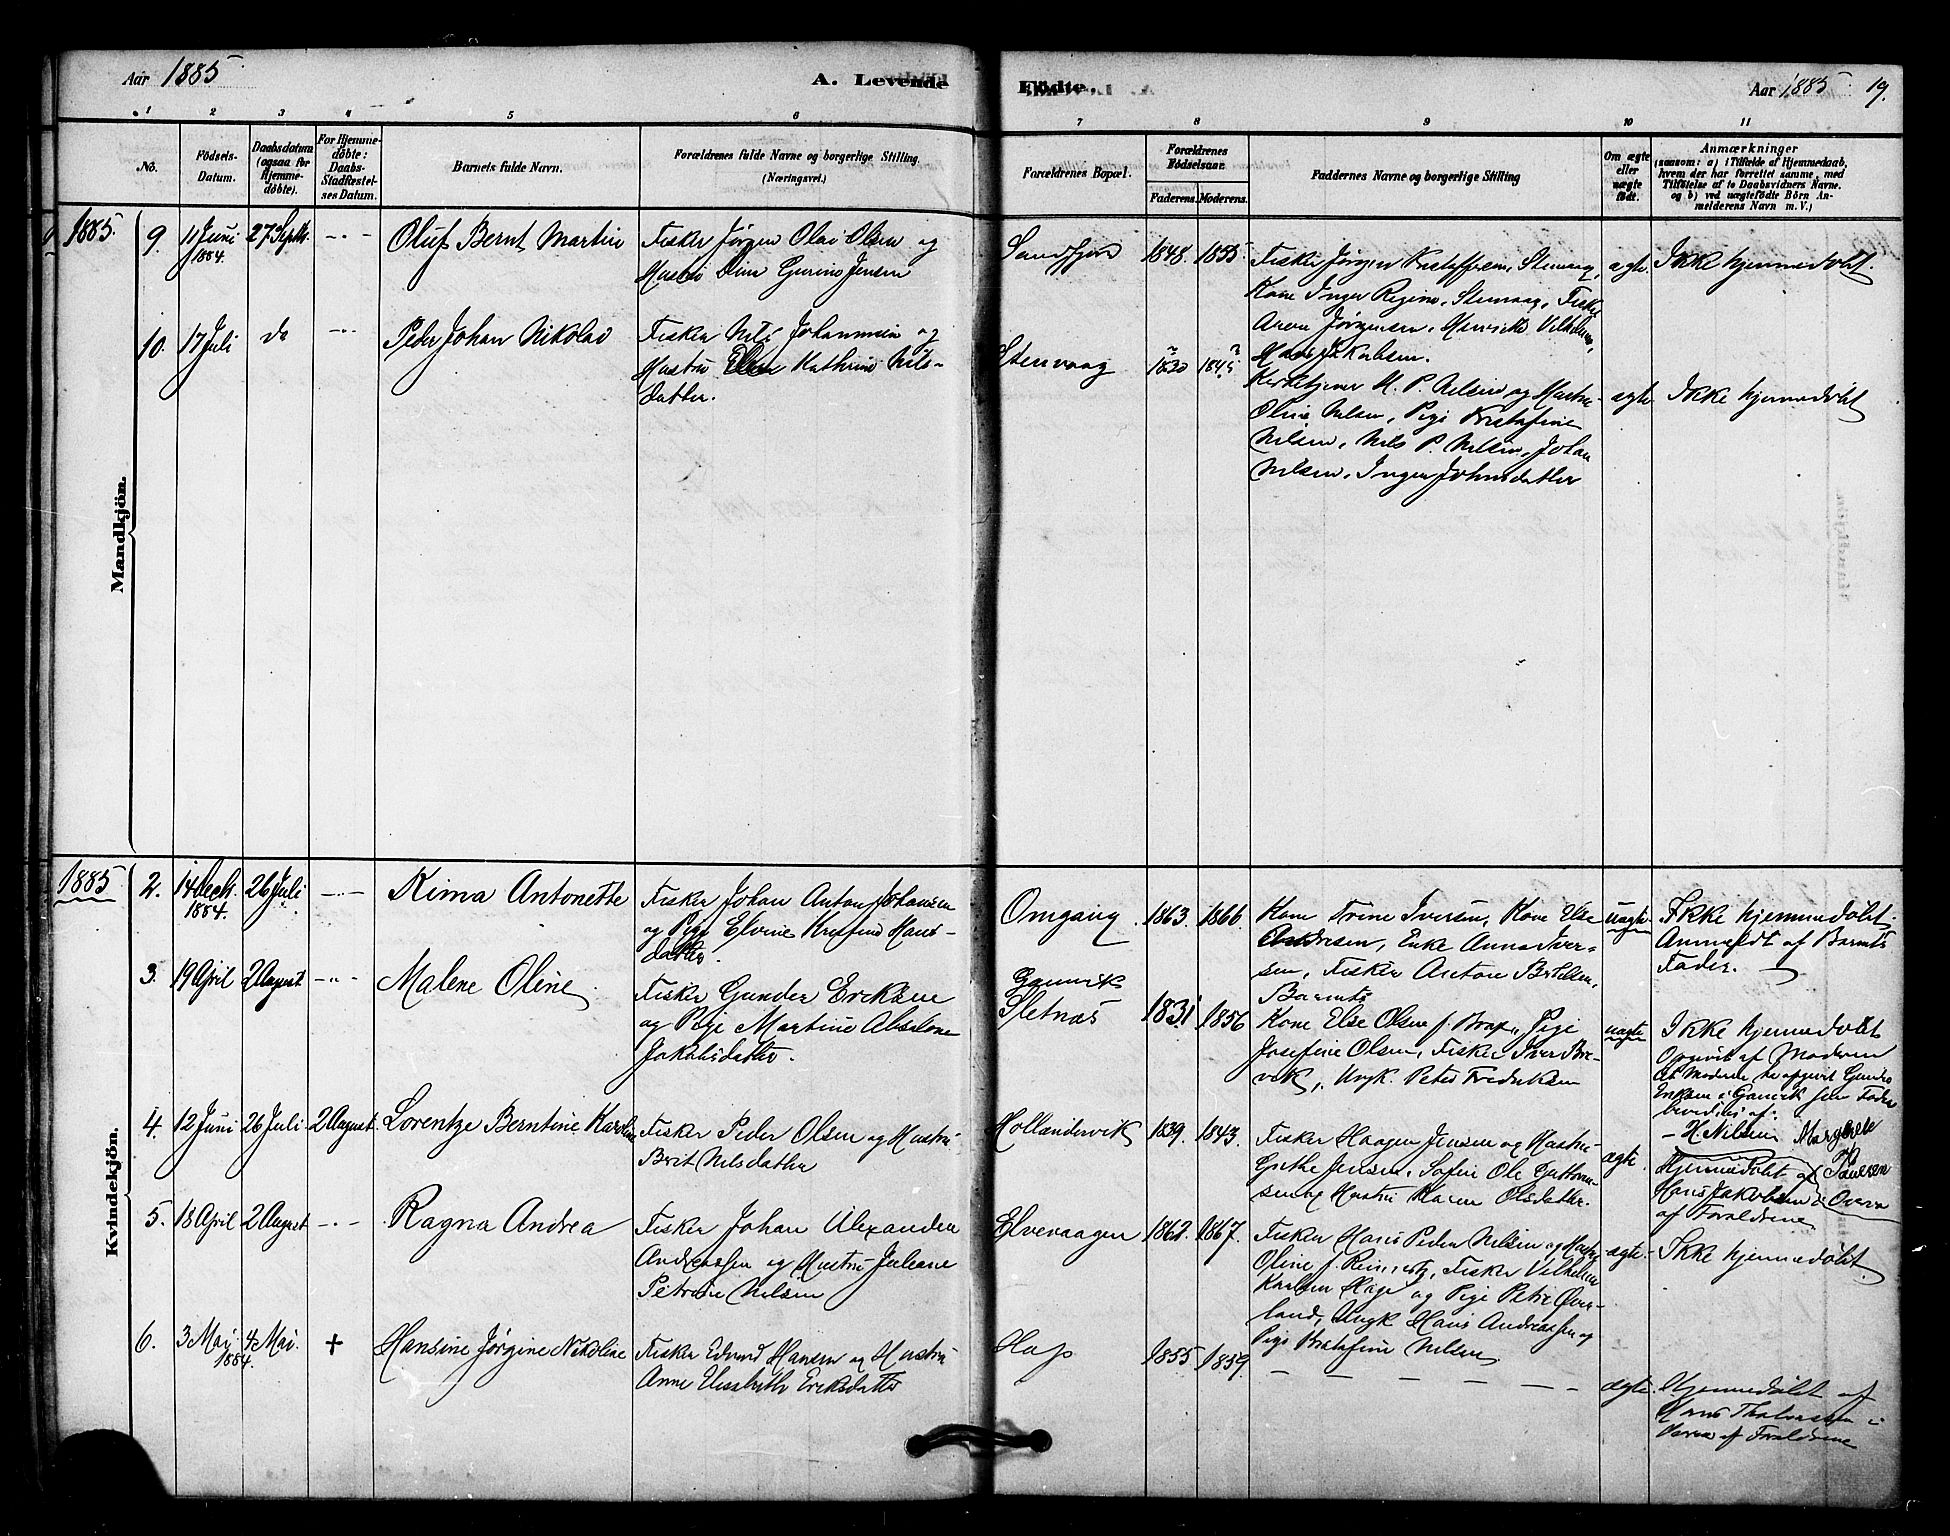 Aar 1885
A. Levende
Födte.
Aar 1885 19.
1 2 3 4 5 6 7 8 9 10 11
No.
Födsels-
Datum.
Daabsdatum
(ogsaa for
Hjemme-
döbte).
For Hjemme-
döbte:
Daabs-
Stadfæstel-
ses Datum.
Barnets fulde Navn.
Forældrenes fulde Navne og borgerlige Stilling.
(Næringsvei.)
Forældrenes Bopæl.
Forældrenes
Födselsaar.
Faderens. Moderens.
Faddernes Navne og borgerlige Stilling
Om ægte
eller
uægte
födt.
Anmærkninger
(saasom: a) i Tilfælde af Hjemmedaab,
hvem der har forrettet samme, med
Tilföielse af to Daabsvidners Navne.
og b) ved uægtefödte Börn An-
melderens Navn m. V.)
Mandkjön.
1885.
9. 11 Juni
1884.
27 Septb.
Oluf Bernt Martin
Fisker Jørgen Olai Olsen og
Hustru Gurine Jensen
Sandfjord
1848. 1855.
Fisker Jørgen Kristoffersen, Stenvaag,
Kone Inger Regine, Stenvaag, Fisker
Jørgensen,
Hans Jakobsen.
ægte.
Ikke hjemmedøbt.
10. 17 Juli
do
Peder Johan Nikolai
Fisker Nils Johannesen og
Hustru Kathrine Nils-
datter.
Stenvaag
1830 1845
Kirketjener H. P. Nilsen og Hustru
Oline Nilsen, Pige Kristofine
Nilsen, Nils P. Nilsen, Johan
Nilsen, Inger Johnsdatter
ægte.
Ikke hjemmedøbt
Kvindekjön.
1885
2. 14 Decb.
1884.
26 Juli
Kima Antonette
Fisker Johan Anton Johansen
og Pige Elvine Hans-
datter.
Omgang
1863. 1866.
Kone Trine Iversen, Kone Else
Andresen, Enke Anna Iver-
sen, Fisker Anton Bertelsen,
Barnets
uægte
Ikke hjemmedøbt.
Anmeldt af Barnets
Fader.
3. 19 April 2 August
Malene Oline
Fisker Gunder Eriksen
og Pige Martine Abelone
Jakobsdatter.
Gamvik
Sletnæs
1831 1856
Kone Else Olsen f. Pige
Josefine Olsen, Fisker Iver Bre-
vik, Ungk. Peter Fredriksen
uægte
Ikke hjemmedøbt
Opgivet af Moderen
at Moderen har opgivet Gunder
Eriksen i Gamvik som Fader
bevidnes af:
H. Nilsen Margrete
4. 12 Juni 26 Juli 2 August.
Lorentze Berntine Karoline
Fisker Peder Olsen og Hustru
Brit Nilsdatter
Hollændervik
1839. 1843.
Fisker Haagen Jensen og Hustru
Jensen, Ole
og Hustru Karen Olsdatter.
ægte.
Hjemmedøbt af
Hans Jakobsen
af Forældrene
5. 18 April 2 August
Ragna Andrea
Fisker Johan Alexander
Andreassen og Hustru Juliane
Petrine Nilsen
Elvevaagen
1862. 1867.
Fisker Hans Peder Nilsen og Hustru
Oline f. Fisker Vilhelm
Karlsen Hop og Pige Petra Øver-
land, Ungk Hans Andreassen og
Pige Kristofine Nilsen
ægte.
Ikke hjemmedøbt.
6. 3 Mai.
1884.
4 Mai. +
Hansine Jørgine Nikoline
Fisker Edvard Hansen og Hustru
Anne Elisabeth Eriksdatter
Hop
1855. 1859.
ægte.
Hjemmedøbt af
Hans
af Forældrene